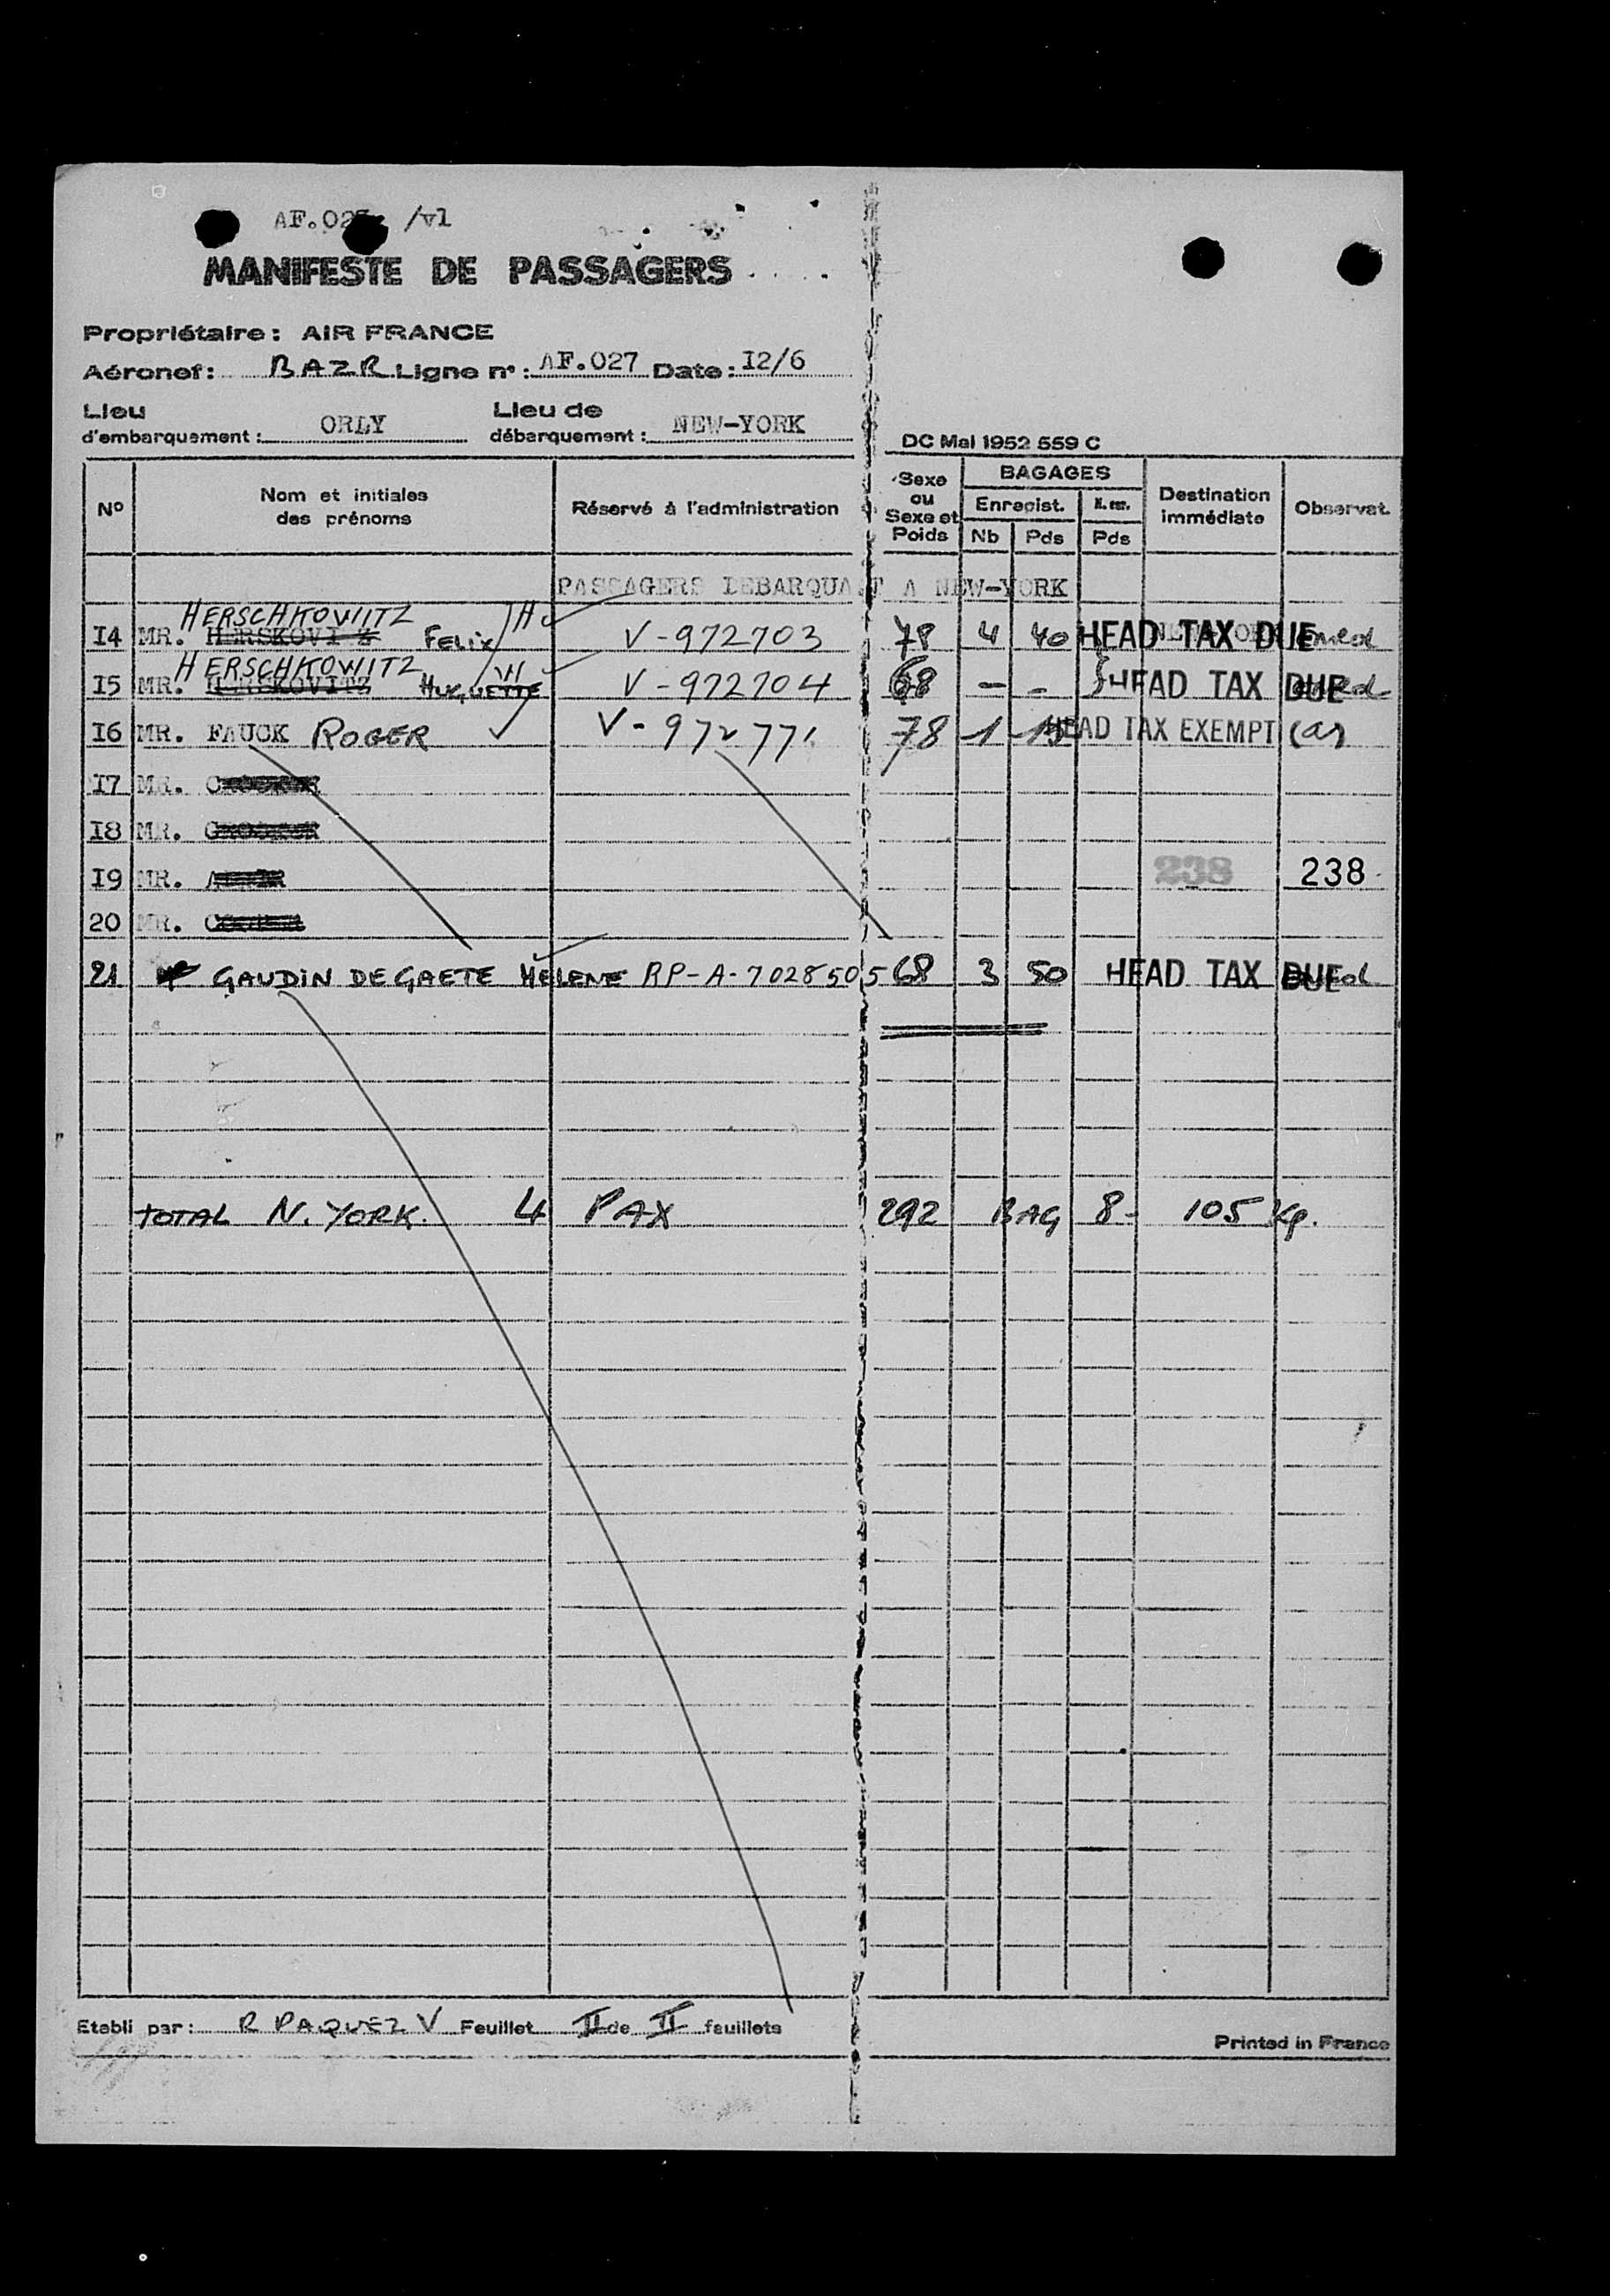 AF.027 /vl
MANIFESTE DE PASSAGERS
Propriétaire : AIR FRANCE
Aéronef : BAZR Ligne n° : AF.027 Date : I2/6
Lieu d'embarquement : ORLY Lieu de débarquement : NEW-YORK
DC Mai 1952 559 C
N° Nom et initiales des prénoms Réservé à l'administration Sexe ou Sexe et Poids BAGAGES Enregist. Nb Pds Pds Destination immédiate Observat.
PASSAGERS DEBARQUANT A NEW-YORK
HERSCHKOVIITZ
I4 MR. HERSKOVITZ Felix H V-972703 78 4 40 NEW-YORK HEAD TAX DUE
HERSCHKOWIITZ
I5 MR. HERSKOVITZ HUGUETTE H V-972704 68 - - HEAD TAX DUE
I6 MR. FAUCK ROGER V-972771 78 1 15 HEAD TAX EXEMPT
I7 MR.
I8 MR.
I9 MR. 238 238
20 MR.
21 GAUDIN DE GAETE HELENE RP-A-7028505 68 3 50 HEAD TAX DUE
TOTAL N. YORK. 4 PAX 292 BAG 8- 105 Kg.
Etabli par : R PAQUEZ V Feuillet II de II feuillets
Printed in France